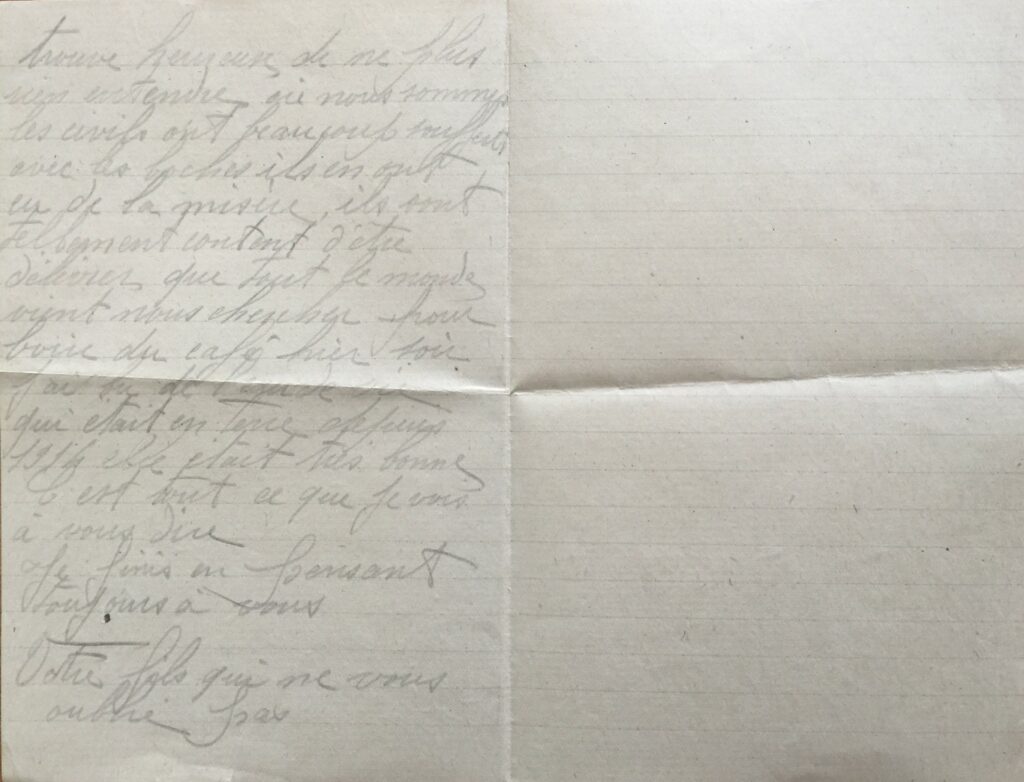 trouve heureux de ne plus
rien entendre, où nous sommes
les civils ont beaucoup souffert
avec les boches ils en ont
eu de la misère, ils sont
tellement content d'être
délivrer que tout le monde
vient nous chercher pour
boire du café hier soir
j'ai bu de l'eau de vie
qui était en terre depuis
1914 elle était très bonne
C'est tout ce que je vois
à vous dire
Je finis en pensant
toujours à vous
Votre fils qui ne vous
oublie pas